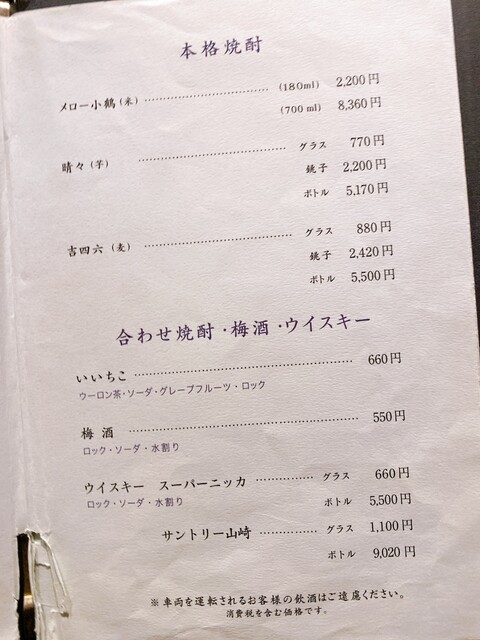 本格焼酎
メロー小鶴(米) (180ml) 2,200円
(700ml) 8,360円
晴々(芋) グラス 770円
銚子 2,200円
ボトル 5,170円
吉四六(麦) グラス 880円
銚子 2,420円
ボトル 5,500円
合わせ焼酎・梅酒・ウイスキー
いいちこ 660円
ウーロン茶・ソーダ・グレープフルーツ・ロック
梅酒 550円
ロック・ソーダ・水割り
ウイスキー スーパーニッカ グラス 660円
ロック・ソーダ・水割り ボトル 5,500円
サントリー山崎 グラス 1,100円
ボトル 9,020円
※車両を運転されるお客様の飲酒はご遠慮ください。
消費税を含む価格です。